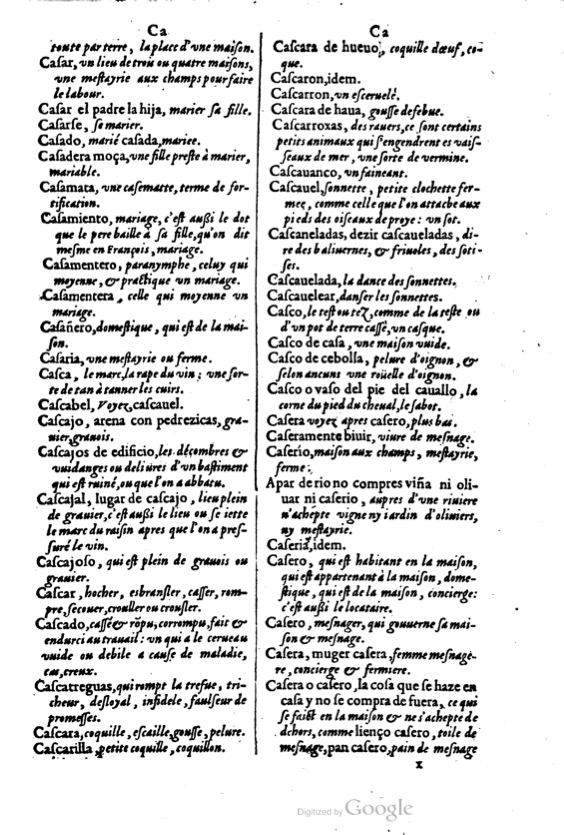 Ca
toute par terre, la place d'vne maison.
Casar, vn lieu de trois ou quatre maisons,
vne mestayrie aux champs pour faire
le labour.
Casar el padre la hija, marier sa fille.
Casarse, se marier.
Casado, marié casada, mariee.
Casadera moça, vne fille preste à marier,
mariable.
Casamata, vne casematte, terme de for-
tification.
Casamiento, mariage, c'est außi le dot
que le pere baille à sa fille, qu'on dit
mesme en François, mariage.
Casamentero, paranymphe, celuy qui
moyenne, & practique vn mariage.
Casamentera, celle qui moyenne vn
mariage.
Casañero, domestique, qui est de la mai-
son.
Casaria, vne mestayrie ou ferme.
Casca, le marc, la rape du vin; vne sor-
te de tan à tanner les cuirs.
Cascabel, Voyez, cascauel.
Cascajo, arena con pedrezicas, gra-
uier, grauois.
Cascajos de edificio, les décombres &
vuidanges ou deliures d'vn bastiment
qui est ruiné, ou que l'on a abbatu.
Cascajal, lugar de cascajo, lieu plein
de grauier, c'est außi le lieu ou se iette
le marc du raisin apres que l'on a pres-
suré le vin.
Cascajoso, qui est plein de grauois ou
grauier.
Cascar, hocher, esbransler, casser, rom-
pre, secouer, crouller ou crousler.
Cascado, cassé & rõpu, corrompu, fait &
endurci au trauail: vn qui a le cerueau
vuide ou debile a cause de maladie,
cas, creux.
Cascatreguas, qui rompt la trefue, tri-
cheur, desloyal, infidele, faulseur de
promesses.
Cascara, coquille, escaille, gousse, pelure.
Cascarilla, petite coquille, coquillon.
Ca
Cascara de hueuo, coquille dœuf, co-
que.
Cascaron, idem.
Cascarron, vn esceruelé.
Cascara de haua, gousse de febue.
Cascarroxas, des rauers, ce sont certains
petits animaux qui s'engendrent es vais-
seaux de mer, vne sorte de vermine.
Cascauanco, vn faineant.
Cascauel, sonnette, petite clochette fer-
mee, comme celle que l'on attache aux
pieds des oiseaux de proye: vn sot.
Cascaneladas, dezir cascaueladas, di-
re des baliuernes, & friuoles, des soti-
ses.
Cascauelada, la dance des sonnettes.
Cascauelear, danser les sonnettes.
Casco, le test ou tez, comme de la teste ou
d'vn pot de terre cassé, vn casque.
Casco de casa, vne maison vuide.
Casco de cebolla, pelure d'oignon, &
selon aucuns vne roüelle d'oignon.
Casco o vaso del pie del cauallo, la
corne du pied du cheual, le sabot.
Casera voyez apres casero, plus bas.
Caseramente biuir, viure de mesnage.
Caserío, maison aux champs, mestayrie,
ferme:
Apar de rio no compres viña ni oli-
uar ni caserio, aupres d'vne riuiere
n'achepte vigne ny iardin d'oliuiers,
ny mestayrie.
Caseria, idem.
Casero, qui est habitant en la maison,
qui est appartenant à la maison, dome-
stique, qui est de la maison, concierge:
c'est außi le locataire.
Casero, mesnager, qui gouuerne sa mai-
son & mesnage.
Casera, muger casera, femme mesnage-
re, concierge & fermiere.
Casera o casero, la cosa que se haze en
casa y no se compra de fuera, ce qui
se faict en la maison & ne s'achepte de
dehors, comme lienço casero, toile de
mesnage, pan casero, pain de mesnage
x
Digitized by Google